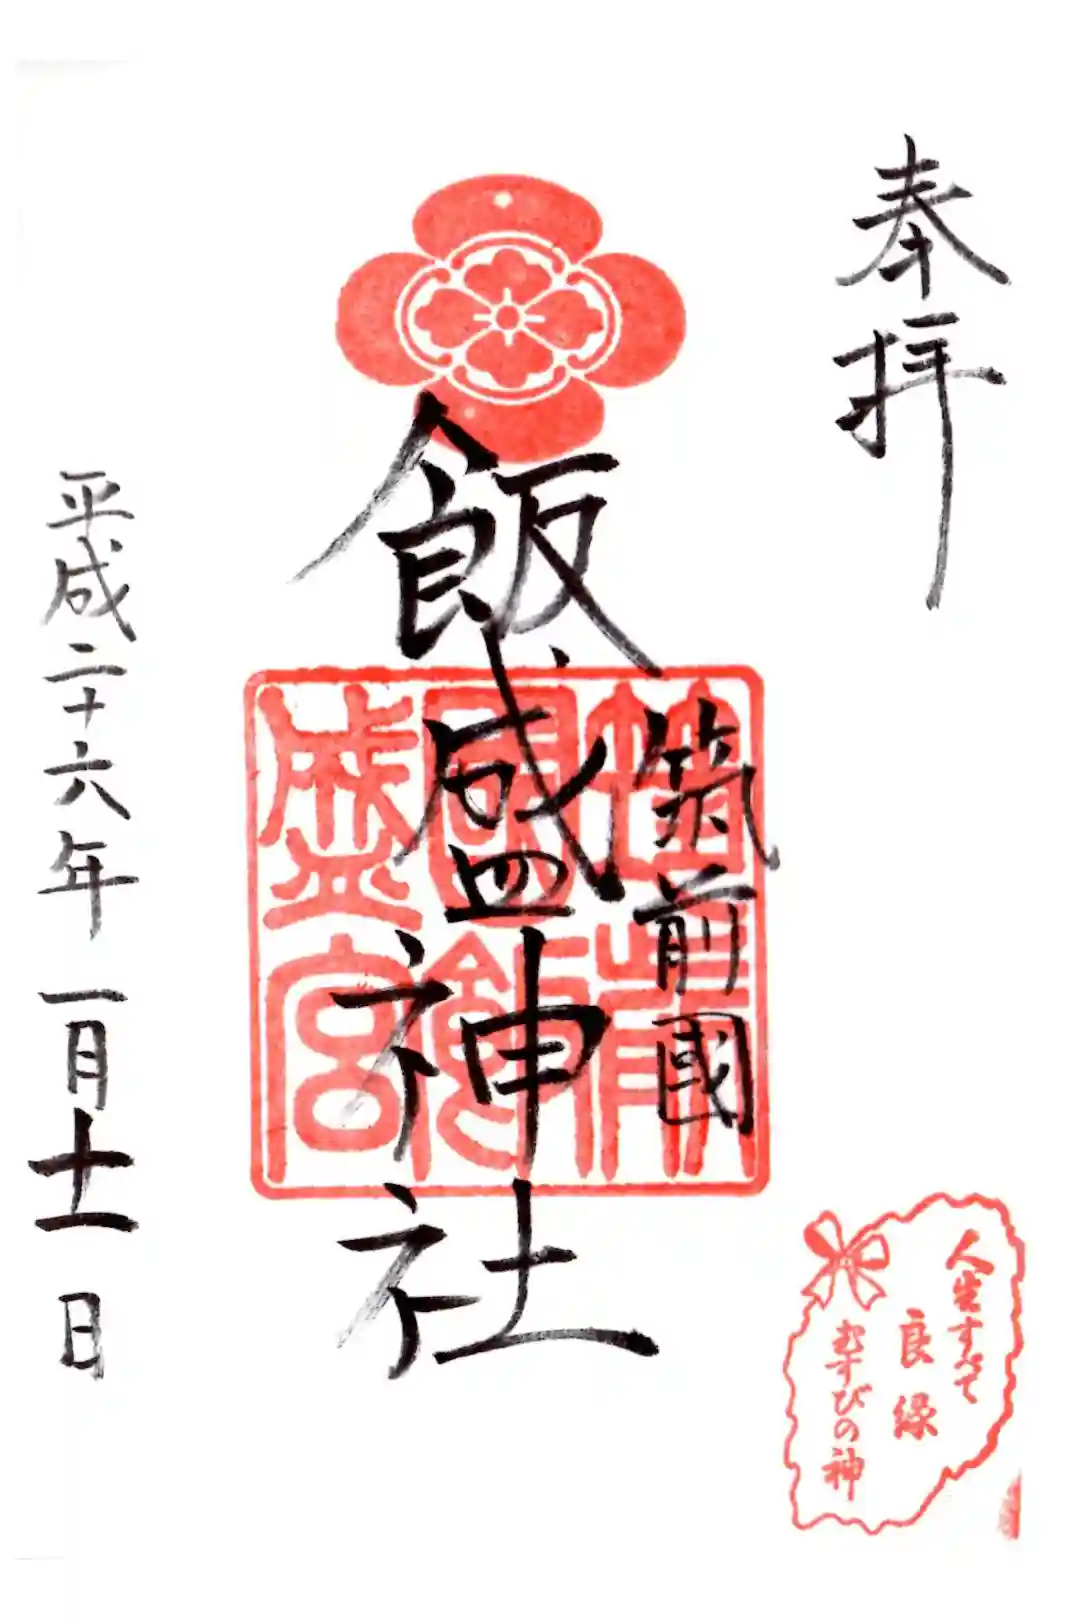 奉拝
筑前國
飯盛神社
平成二十六年一月十一日
筑前
國飯
盛宮
人生すべて
良縁
むすびの神